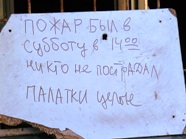 ПОЖАР БЫЛ В
СУББОТУ В 14 00
НИКТО НЕ ПОСТРАДАЛ
ПАЛАТКИ ЦЕЛЫЕ